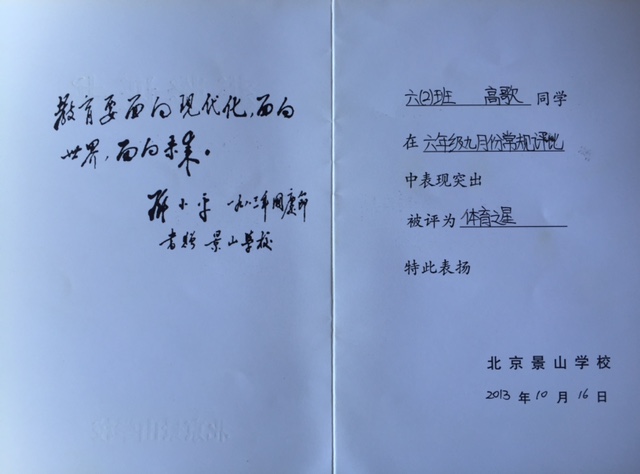 教育要面向现代化,面向
世界,面向未来。
邓小平 一九八三年国庆节
书赠 景山学校
六(2)班 高歌 同学
在 六年级九月份常规评比
中表现突出
被评为 体育之星
特此表扬
北京景山学校
2013 年 10 月 16 日